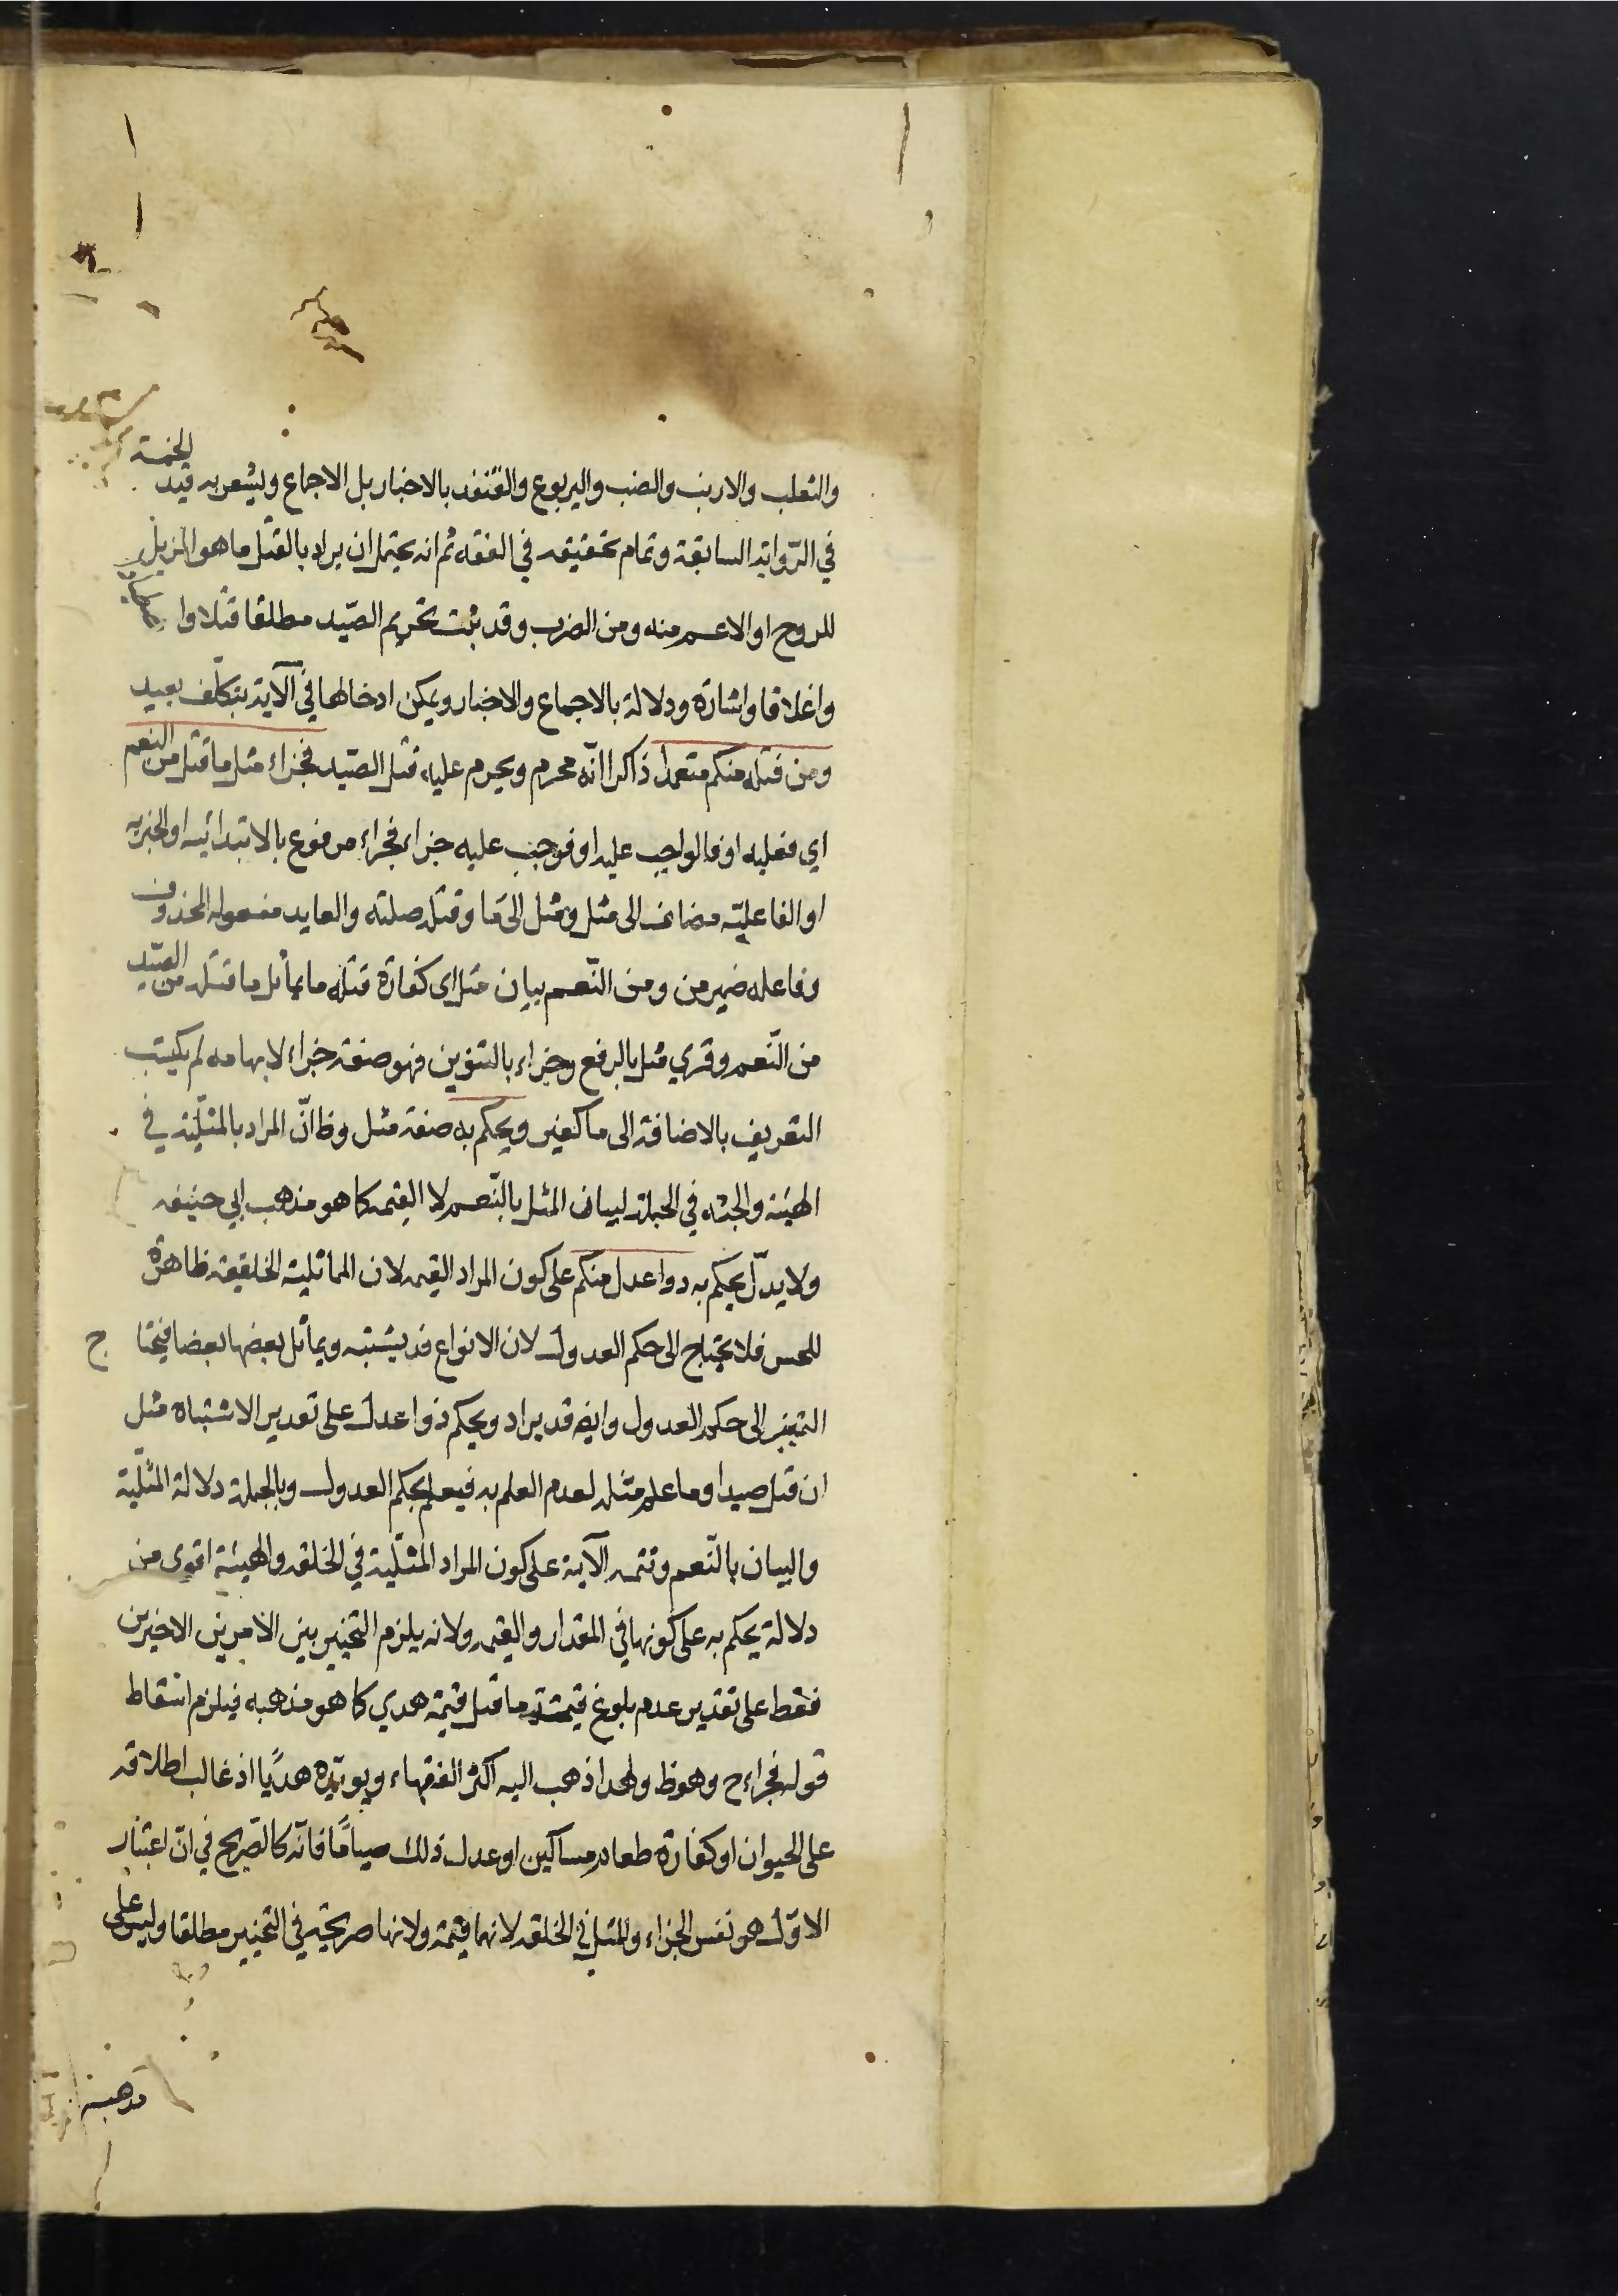 والثعلب والارنب والضب واليربوع والقنفذ بالاخبار بل الاجماع ويشعر به قيد الخمسة
في الرّواية السابقة وتمام تحقيقه في الفقه ثم انه يحتمل ان يراد بالقتل ما هو المزيل
للروح او الاعم منه ومن الضرب وقد ثبت تحريم الصّيد مطلقا قتلا وا
واغلاقا واشارة ودلالة بالاجماع والاخبار ويمكن ادخالها في الآية بتكلّف بعيد
ومن قتله منكم متعمدا ذاكرا انّه محرم ويحرم عليه قتل الصّيد فجزاء مثل ما قتل من النعم
اي فعليه او فالواجب عليه او فوجب عليه جزاء فجزاء مرفوع بالابتدائيه او الخبريه
او الفاعليّه مضاف الى مثل ومثل الى ما وقتل صلته والعايد مفعوله المحذوف
وفاعله ضمير من ومن النّعم بيان مثل اى كفارة قتله ما يماثل ما قتله من الصّيد
من النّعم وقري مثل بالرفع وجزاء بالتنوين فهو صفة جزاء لابهامه لم يكتب
التعريف بالاضافة الى ما كغير ويحكم به صفة مثل وظ انّ المراد بالمثليّة في
الهيئة والجثه في الجملة لبيان المثل بالنّعم لا القيمه كما هو مذهب ابي حنيفه
ولا يدلّ يحكم به دوا عدل منكم على كون المراد القيمه لان المماثلية الخلقيه ظاهرة
للحس فلا يحتاج الى حكم العدول لان الانواع قد يشتبه ويماثل بعضها بعضا فيحتا ج
التميز الى حكم العدول وايضه قد يراد ويحكم ذوا عدل على تقدير الاشتباه مثل
ان قتل صيدا وما علم مثله لعدم العلم به فيعلم بحكم العدول وبالجملة دلالة المثليّة
والبيان بالنّعم وتتمه الآية على كون المراد المثليّة في الخلقه والهيئة اقوى من
دلالة يحكم به على كونها في المقدار والقيمه ولانه يلزم التخيير بين الامرين الاخيرين
فقط على تقدير عدم بلوغ قيمته ما قتل قيمة هدي كما هو مذهبه فيلزم اسقاط
قوله فجزاء ح وهو ظ ولهذا ذهب اليه اكثر الفقهاء ويويّده هديًا اذ غالب اطلاقه
على الحيوان او كفارة طعام مساكين او عدل ذلك صيامًا فانّه كالتصريح في انّ اعتبار
الاوّل هو نفس الجزاء والمثل في الخلقه لانهما قيمة ولانها صريحة في التخيير مطلقا وليس على
مذهبه